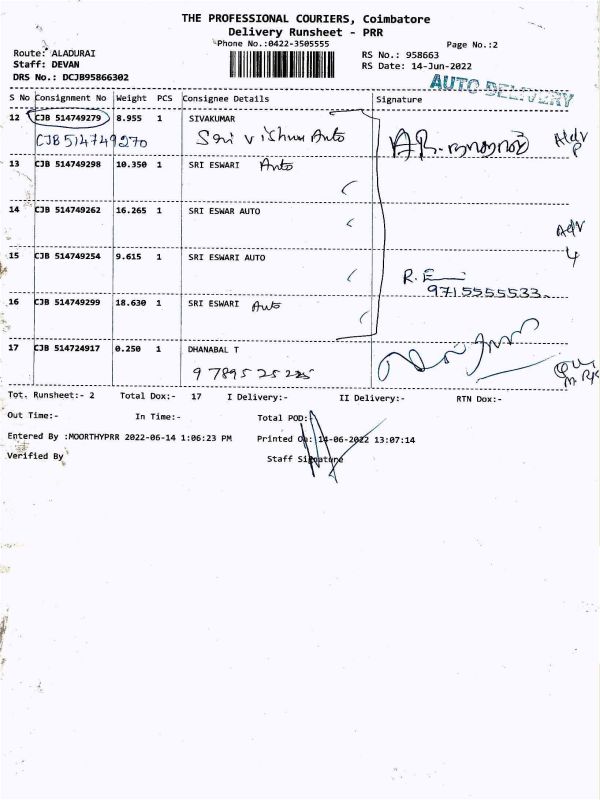 THE PROFESSIONAL COURIERS, Coimbatore
Delivery Runsheet - PRR
Phone No.:0422-3505555
Page No.:2
Route: ALADURAI
RS No.: 958663
Staff: DEVAN
RS Date: 14-Jun-2022
DRS No.: DCJB95866302
AUTO DELIVERY
S No Consignment No Weight PCS Consignee Details Signature
12 CJB 514749279 8.955 1 SIVAKUMAR
CJB514749270 Sri Vishnu Auto
13 CJB 514749298 10.350 1 SRI ESWARI Auto
14 CJB 514749262 16.265 1 SRI ESWAR AUTO
15 CJB 514749254 9.615 1 SRI ESWARI AUTO
R.E
9715555533
16 CJB 514749299 18.630 1 SRI ESWARI Auto
17 CJB 514724917 0.250 1 DHANABAL T
Tot. Runsheet:- 2 Total Dox:- 17 I Delivery:- II Delivery:- RTN Dox:-
Out Time:- In Time:- Total POD:
Entered By :MOORTHYPRR 2022-06-14 1:06:23 PM Printed On: 14-06-2022 13:07:14
Verified By Staff Signature